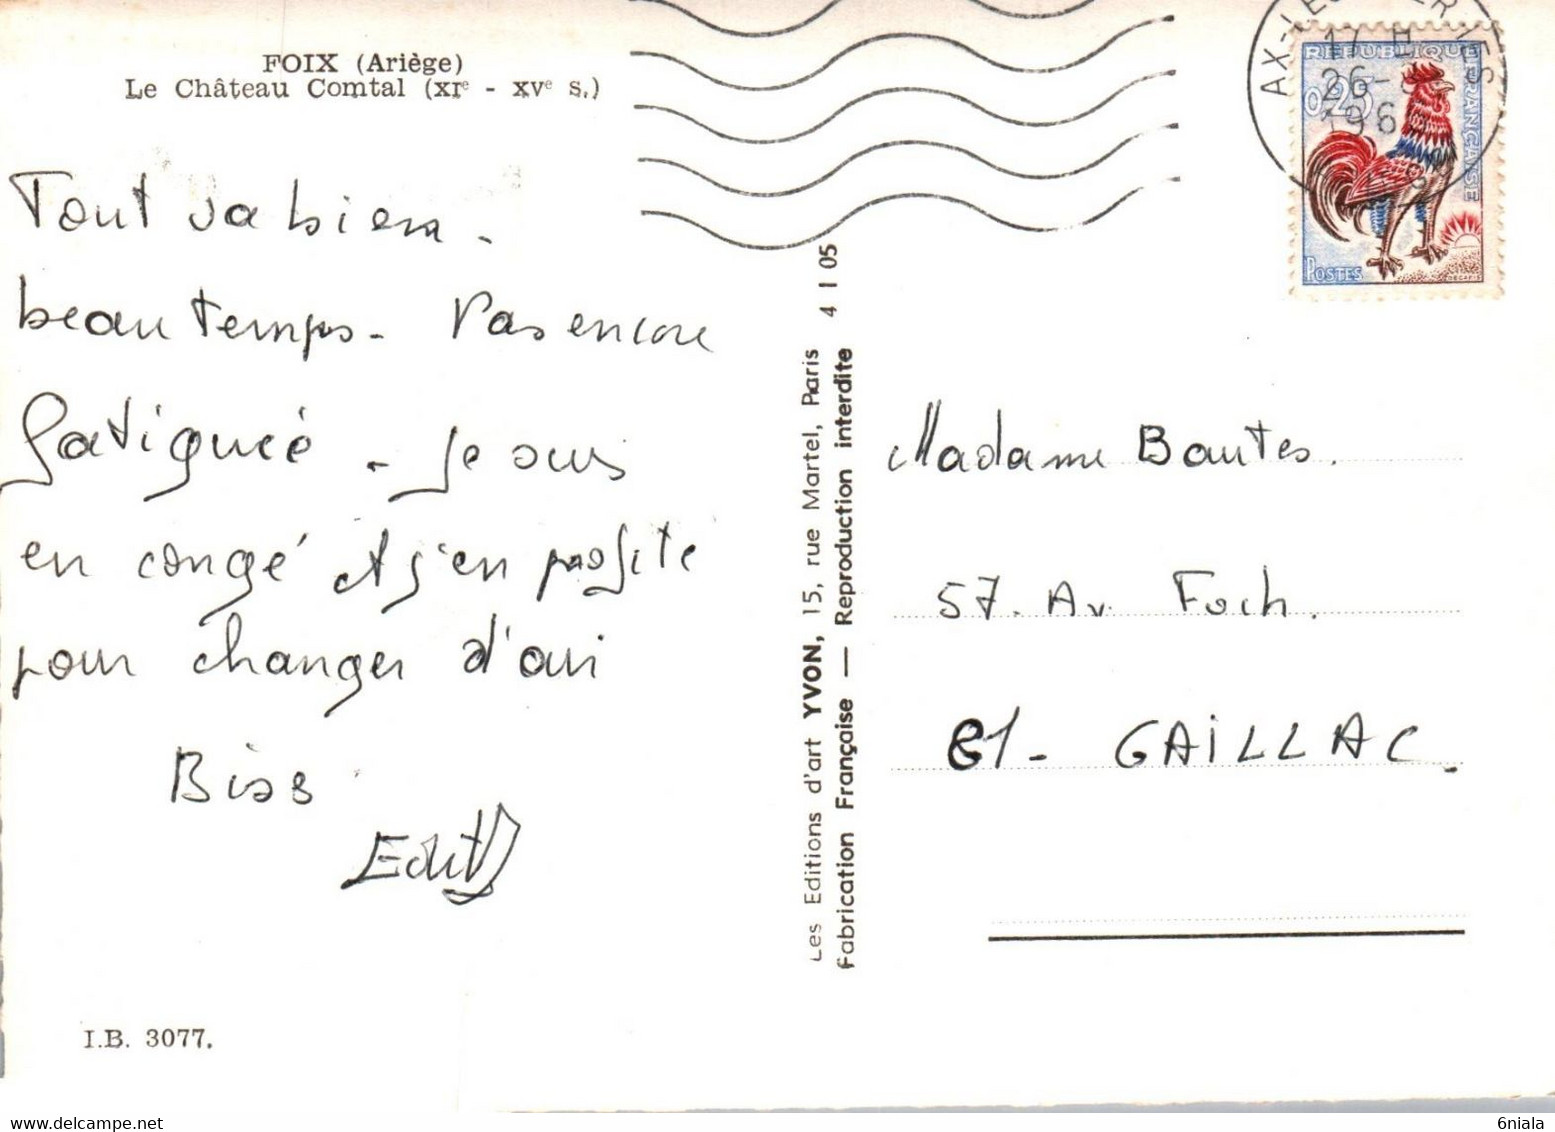 FOIX (Ariège)
Le Château Comtal (XIe - XVe s.)
Tout va bien -
beau temps - Pas encore
fatiguée - Je suis
en congé et j'en profite
pour changer d'air
Bises
Edith
I.B. 3077.
Les Editions d'art YVON, 15, rue Martel, Paris 4 1 05
Fabrication Française — Reproduction interdite
17 H
26-
196
REPUBLIQUE FRANÇAISE
0,25
POSTES
DECARIS
Madame Bautes.
57. Av. Foch.
81 - GAILLAC.
6niala